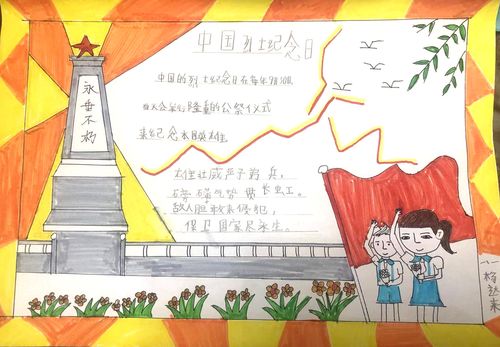 中国烈士纪念日
永垂不朽
中国的烈士纪念日在每年9月30日
每天会举行隆重的公祭仪式
来纪念本国英雄
雄壮威严子弟兵,
磅礴气势贯长虹。
敌人胆敢来侵犯,
保卫国家尽永生。